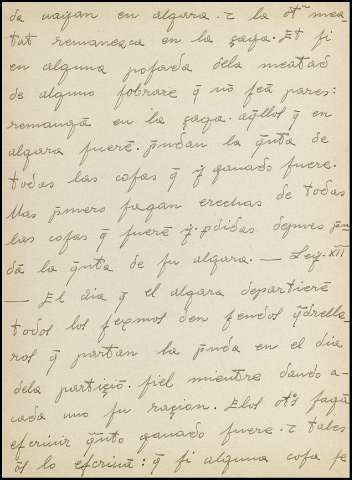 da uayan en algara. τ la ot̃ mea_
tat remanesca en la çaga. Et si
en alguna posada dela meatad
de alguno sobrare q̄ nō seā pares:
remangā en la çaga. aq̄llos q̄ en
algara fuerē. p̄ndan la q̄nta de
todas las cosas q̄ ẏ ganado fuere.
Mas p̄mero fagan erechas de todas
las cosas q̄ fuerē ẏ. p̄didas depues p̄n_
dā la q̄nta de su algara. — Ley. XII
— El dia q̄ el algara departierē
todos los sexmos den sendos q̄drella_
ros q̄ partan la p̄nda en el dia
dela particiō. fiel mientre dando a_
cada uno su raçion. Elos ot̃s fagā
escriuir q̄nto ganado fuere. τ tales
ōs lo escriuā: q̄ si alguna cosa fe